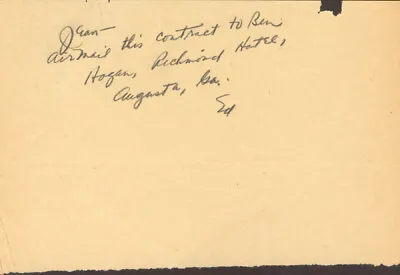 Jean—
Airmail this contract to Ben
Hogan, Richmond Hotel,
Augusta, Ga.
Ed